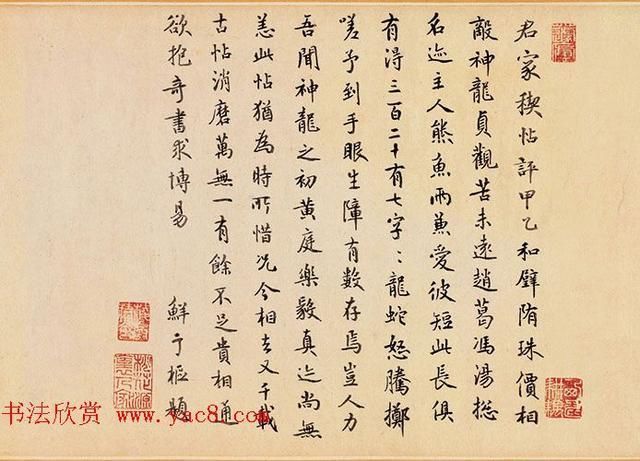 君家稧帖評甲乙和璧隋珠價相
敵神龍貞觀苦未遠趙葛馮湯揔
名迹主人熊魚兩兼愛彼短此長俱
有得三百二十有七字〻龍蛇怒騰擲
嗟予到手眼生障有數存焉豈人力
吾聞神龍之初黃庭樂毅真迹尚無
恙此帖猶為時所惜况今相去又千載
古帖消磨萬無一有餘不足貴相通
欲抱奇書求博易 鮮于樞題
书法欣赏 www.yac8.com